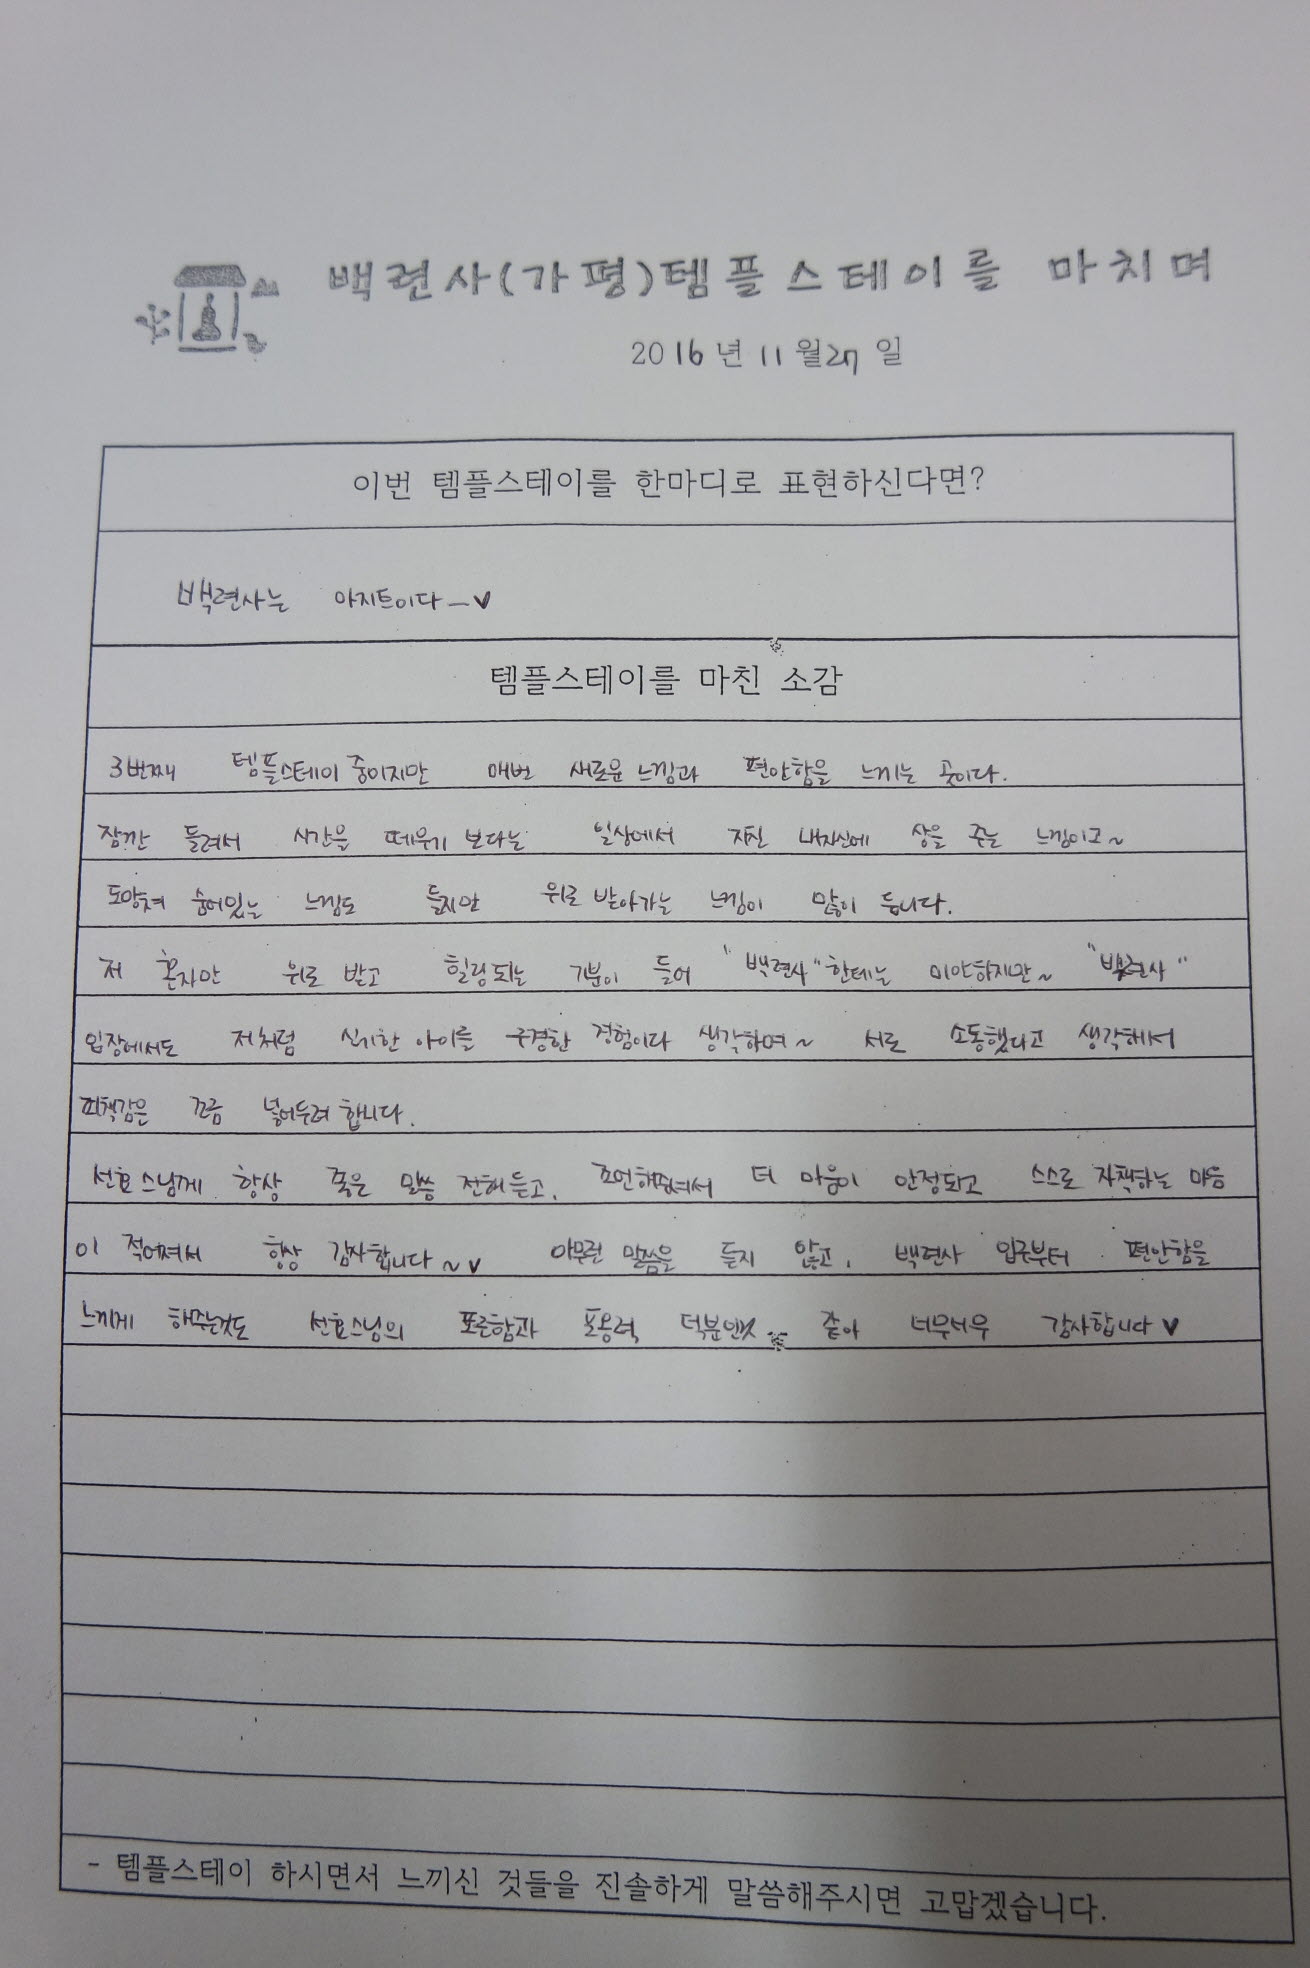 백련사(가평)템플스테이를 마치며
2016년 11월27일
이번 템플스테이를 한마디로 표현하신다면?
백련사는 아지트이다-♥
템플스테이를 마친 소감
3번째 템플스테이 중이지만 매번 새로운 느낌과 편안함을 느끼는 곳이다.
잠깐 들려서 시간을 떼우기 보다는 일상에서 지친 내자신에 상을 주는 느낌이고~
도망쳐 숨어있는 느낌도 들지만 위로 받아가는 느낌이 많이 듭니다.
저 혼자만 위로 받고 힐링되는 기분이 들어 "백련사"한테는 미안하지만~ "백련사"
입장에서도 저처럼 신기한 아이를 구경한 경험이다 생각하며~ 서로 소통했다고 생각해서
죄책감은 조금 넣어두려 합니다.
선효스님께 항상 좋은 말씀 전해듣고, 조언해주셔서 더 마음이 안정되고 스스로 자책하는 마음
이 적어져서 항상 감사합니다~♥ 아무런 말씀을 듣지 않고, 백련사 입구부터 편안함을
느끼게 해주는것도 선효스님의 포근함과 포용력, 덕분인것 같아 너무너무 감사합니다♥
- 템플스테이 하시면서 느끼신 것들을 진솔하게 말씀해주시면 고맙겠습니다.